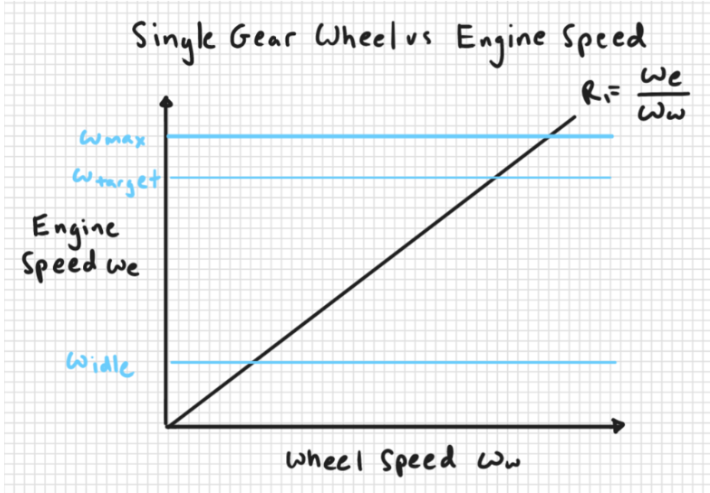 Single Gear Wheel vs Engine Speed
R₁= ωe/ωw
ωmax
ωtarget
Engine
Speed ωe
ωidle
Wheel Speed ωw